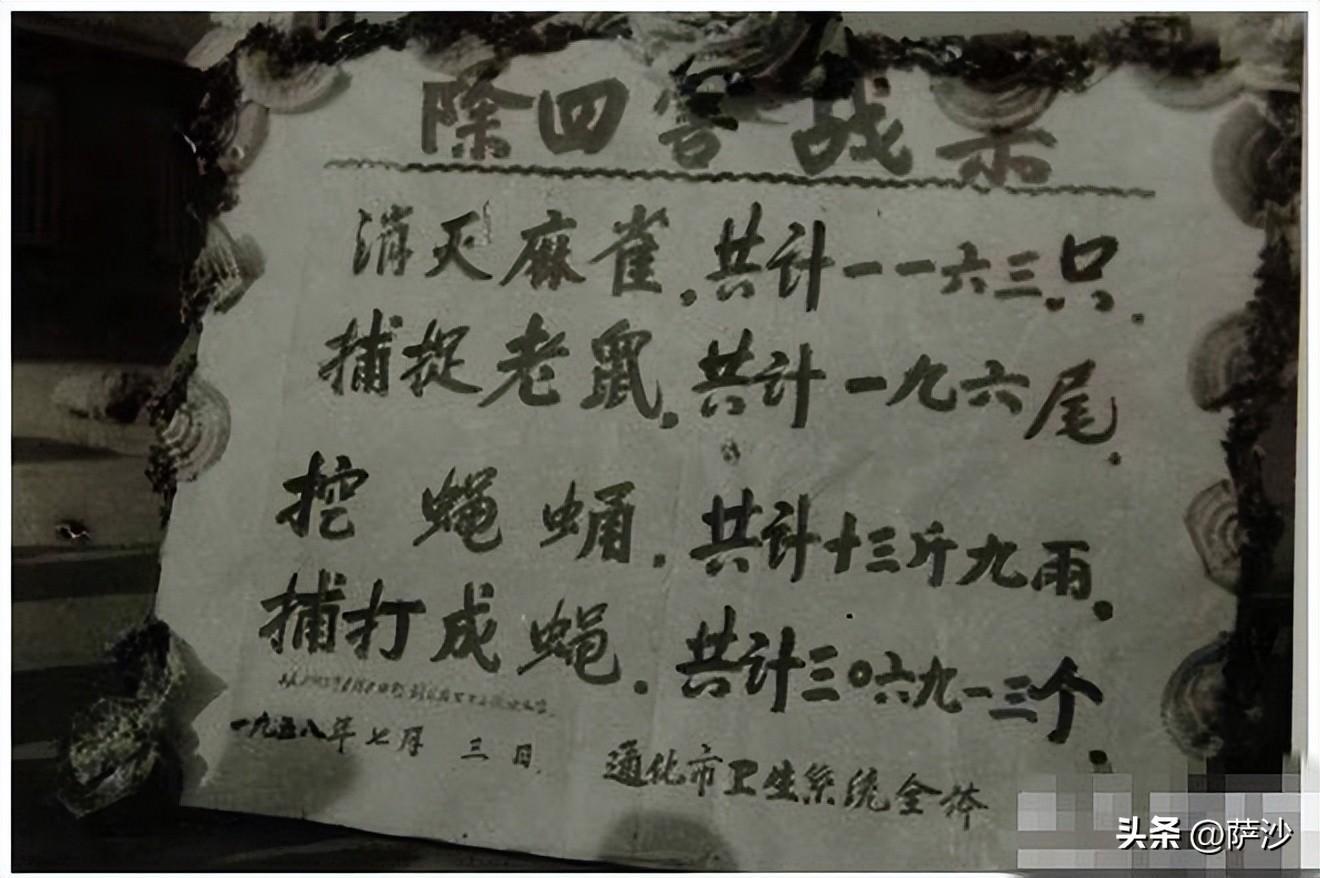 除四害战果
消灭麻雀.共计一一六三只.
捕捉老鼠.共计一九六尾.
挖蝇蛹.共计十三斤九雨.
捕打成蝇.共计三〇六九一三个.
一九五八年七月三日.
通化市卫生系统全体
头条 @萨沙